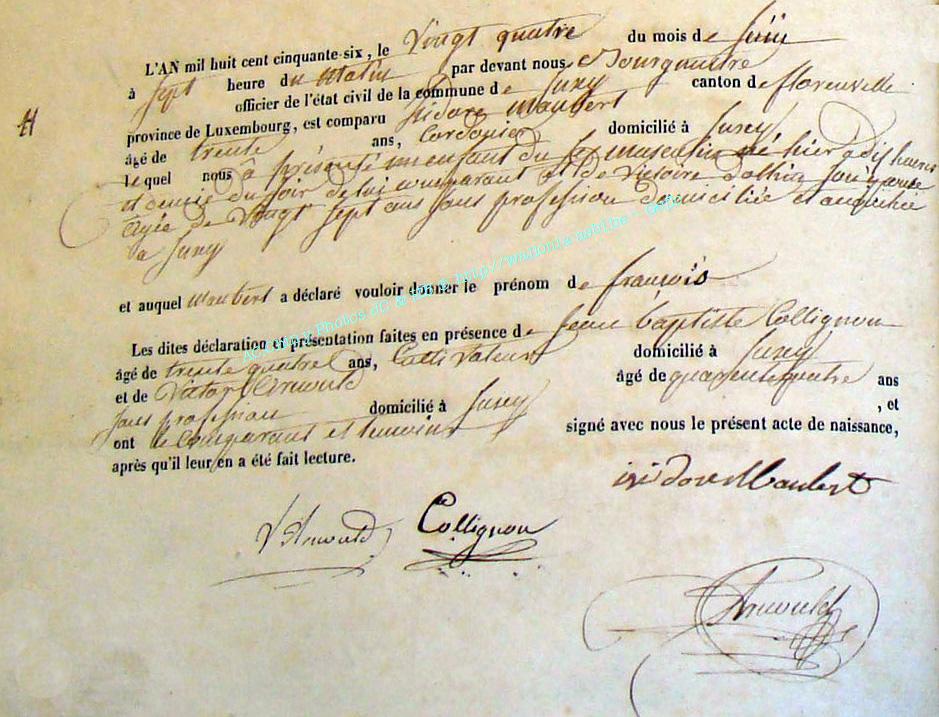 L'AN mil huit cent cinquante-six, le Vingt quatre du mois de Juin
à Sept heure du Matin par devant nous Bourgmestre
officier de l'état civil de la commune de Suxy canton de florenville
province de Luxembourg, est comparu Isidore Maubert
âgé de trente ans, Cordonier domicilié à Suxy
lequel nous à présenté un enfant du sexe masculin né hier à dix heures
et demie du soir de lui comparant et de Victoire son épouse
Agée de Vingt sept ans sans profession domiciliée et
à Suxy
et auquel Maubert a déclaré vouloir donner le prénom de françois
Les dites déclaration et présentation faites en présence de Jean baptiste Collignon
âgé de trente quatre ans, Cultivateur domicilié à Suxy
et de Victor Arnould âgé de quarente quatre ans
sans profession domicilié à Suxy , et
ont le Comparant et temoins signé avec nous le présent acte de naissance,
après qu'il leur en a été fait lecture.
isidore Maubert
V Arnould Collignon
Arnould